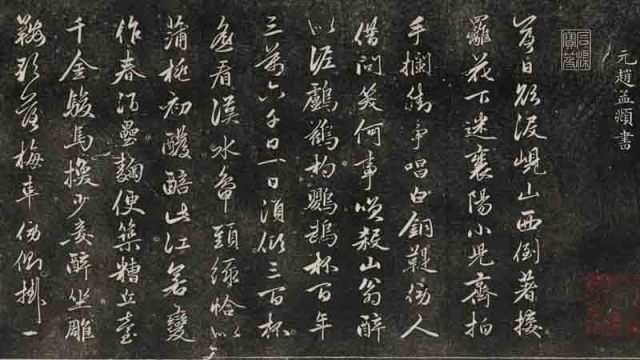 元趙孟頫書
落日欲没峴山西倒著接
䍦花下迷襄陽小兒齊拍
手攔街爭唱白銅鞮傍人
借問笑何事笑殺山翁醉
似泥鸕鶿杓鸚鵡杯百年
三萬六千日一日須傾三百杯
遙看漢水鴨頭綠恰似
蒲桃初醱醅此江若變
作春酒壘麴便築糟丘臺
千金駿馬換少妾醉坐雕
鞍歌落梅車傍側掛一